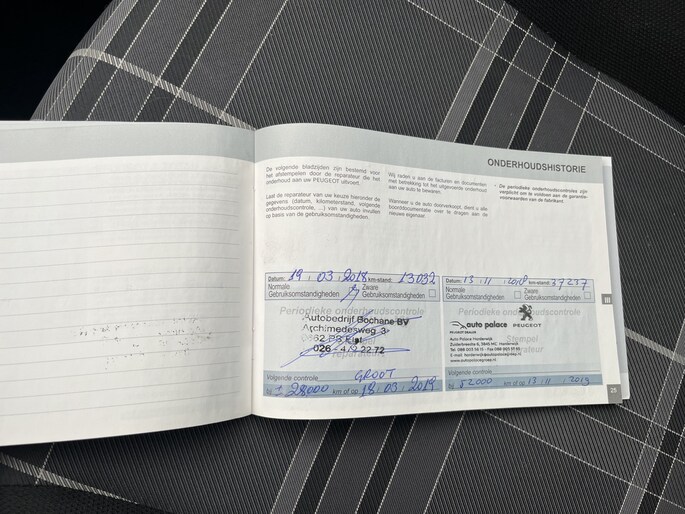 ONDERHOUDSHISTORIE
De volgende bladzijden zijn bestemd voor
het afstempelen door de reparateur die het
onderhoud aan uw PEUGEOT uitvoert.
Laat de reparateur van uw keuze hieronder de
gegevens (datum, kilometerstand, volgende
onderhoudscontrole, ...) van uw auto invullen
op basis van de gebruiksomstandigheden.
Wij raden u aan de facturen en documenten
met betrekking tot het uitgevoerde onderhoud
aan uw auto te bewaren.
Wanneer u de auto doorverkoopt, dient u alle
boorddocumentatie over te dragen aan de
nieuwe eigenaar.
• De periodieke onderhoudscontroles zijn
verplicht om te voldoen aan de garantie-
voorwaarden van de fabrikant.
Datum: 19 . 03 . 2018 km-stand: 13032
Normale
Gebruiksomstandigheden
Zware
Gebruiksomstandigheden
Periodieke onderhoudscontrole
Autobedrijf Bochane BV
Archimedesweg 3
026 - 479 22 72
Volgende controle GROOT
28000 km of op 18 . 03 . 2019
Datum: 13 . 11 . 2018 km-stand: 37237
Normale
Gebruiksomstandigheden
Zware
Gebruiksomstandigheden
Periodieke onderhoudscontrole
auto palace PEUGEOT
Stempel
Auto Palace Harderwijk
Volgende controle
52000 km of op 13 . 11 . 2019
III
25